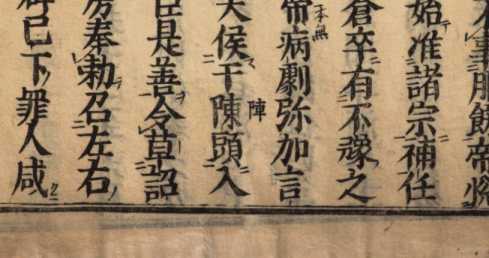 事服 帝
始准諸宗補任
倉卒有不豫之
帝病劇弥加言
侯干陳頭入
陣
臣是善令草詔
房奉勅召左右
已下罪人咸